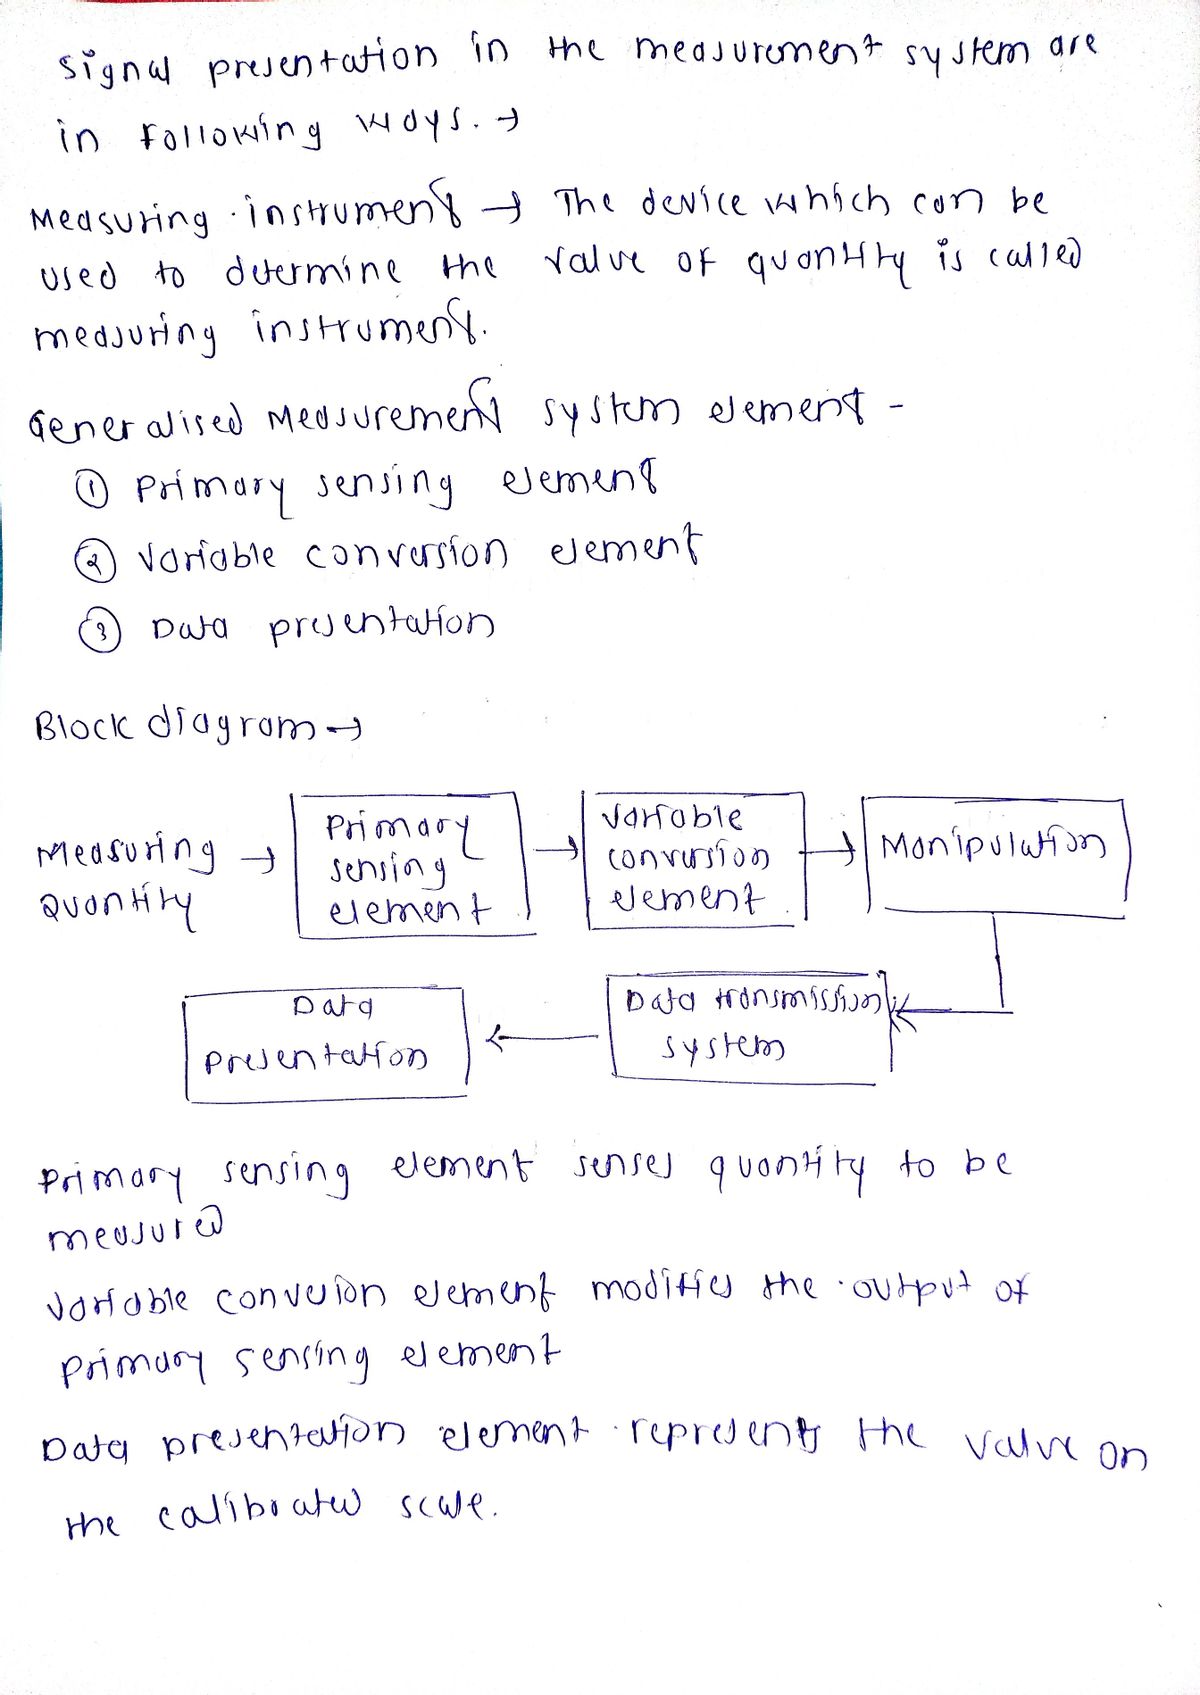 Signal presentation in the measurement system are
in following ways. →
Measuring instrument → The device which can be
used to determine the value of quantity is called
measuring instrument.
Generalised Measurement system element -
① Primary sensing element
② Variable conversion element
③ Data presentation
Block diagram →
Measuring →
Quantity
Primary
sensing
element
→
Variable
conversion
element
→
Manipulation
Data transmission
system
←
Data
presentation
Primary sensing element senses quantity to be
measured
Variable conversion element modifies the output of
primary sensing element
Data presentation element represents the value on
the calibrated scale.